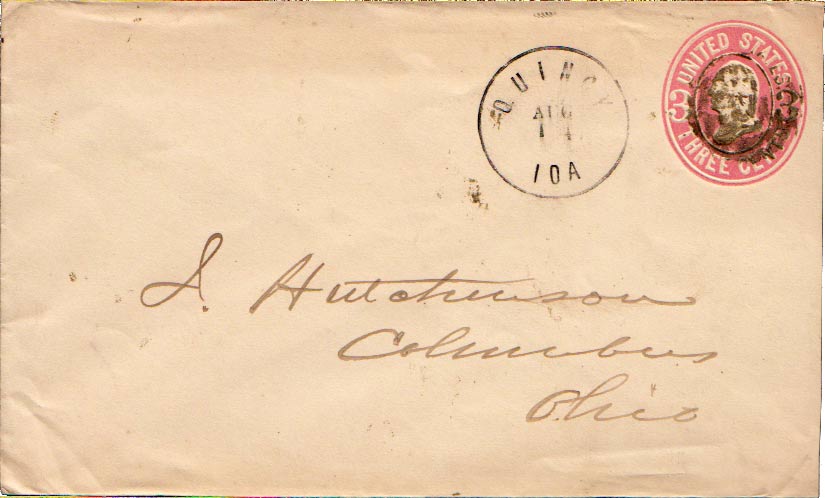 QUINCY
AUG
14
IOA
UNITED STATES
3 3
THREE CE
S. Hutchinson
Columbus
Ohio